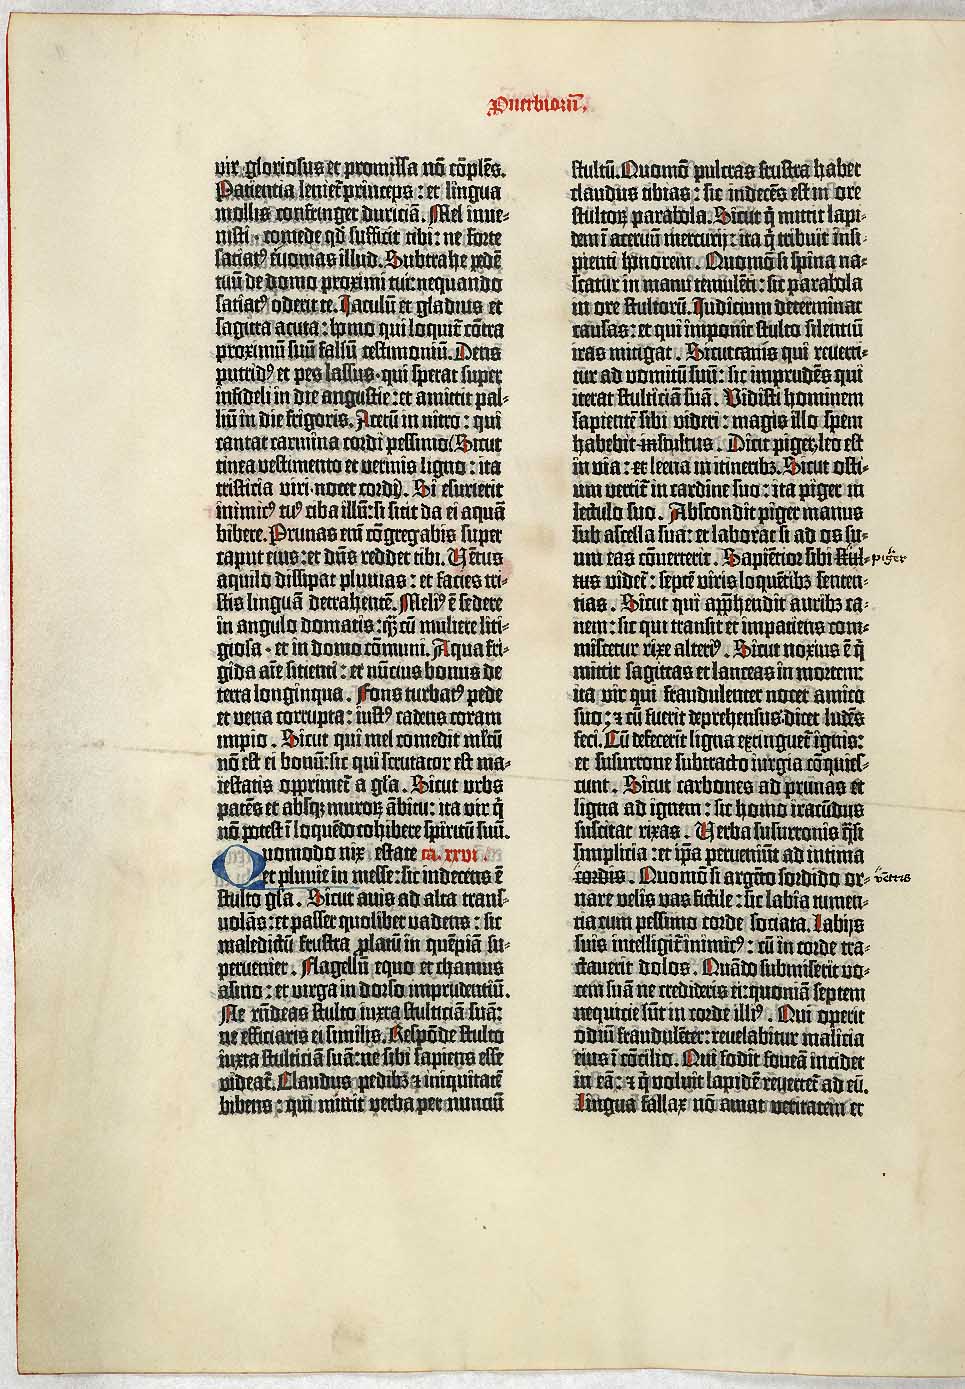 Ꝓuerbiorū.
vir gloriosus et promissa nō cōplēs.
Patientia leniet᷑ princeps : et lingua
mollis confringet duriciā. Mel inue-
nisti · comede qd̄ sufficit tibi : ne forte
satiatꝰ euomas illud. Subtrahe pedē
tuū de domo proximi tui: nequando
satiatꝰ oderit te. Iaculū et gladius et
sagitta acuta : homo qui loquit᷑ cōtra
proximū suū falsū testimoniū. Dens
putridꝰ et pes lassus · qui sperat super
infideli in die angustie : et amittit pal-
liū in die frigoris. Acetū in nitro : qui
cantat carmina cordi pessimo. (Sicut
tinea vestimento et vermis ligno : ita
tristicia viri nocet cordi). Si esurierit
inimicꝰ tuꝰ ciba illū: si sitit da ei aquā
bibere. Prunas eni̅ cōgregabis super
caput eius : et dn̄s reddet tibi. Uētus
aquilo dissipat pluuias : et facies tri-
stis linguā detrahentē. Meliꝰ ē sedere
in angulo domatis : qƺ cū muliere liti-
giosa · et in domo cōmuni. Aqua fri-
gida aīe sitienti : et nūcius bonus de
terra longinqua. Fons turbatꝰ pede
et vena corrupta : iustꝰ cadens coram
impio . Sicut qui mel comedit ml̄tū
nō est ei bonū: sic qui scrutator est ma-
iestatis opprimet᷑ a gl̄a . Sicut urbs
patēs et absqƺ muroꝝ ābitu : ita vir q̄
nō potest ī loquēdo cohibere spiritū suū.
Quomodo nix estate ca. xxvi.
et pluuie in messe : sic indecens ē
stulto gl̄a . Sicut auis ad alta trans-
volās : et passer quolibet vadens : sic
maledictū frustra ꝓlatū in quēpiā su-
perueniet . Flagellū equo et chamus
asino : et virga in dorso imprudentiū.
Ne rn̄deas stulto iuxta stulticiā suā:
ne efficiaris ei similis. Respōde stulto
iuxta stulticiā suā: ne sibi sapiens esse
videat᷑. Claudus pedibƺ ⁊ iniquitatē
bibens : qui mittit verba per nunciū
stultū. Quomō pulcras frustra habet
claudus tibias : sic indecēs est in ore
stultoꝝ parabola. Sicut q̄ mittit lapi-
dem ī aceruū mercurij : ita q̄ tribuit insi-
pienti honorem . Quomō si spina na-
scatur in manu temulēti : sic parabola
in ore stultorū. Iudicium determinat
causas : et qui imponit stulto silentiū
iras mitigat . Sicut canis qui reuerti-
tur ad vomitū suū : sic imprudēs qui
iterat stulticiā suā . Vidisti hominem
sapientē sibi videri : magis illo spem
habebit insipiens . Dicit piger, leo est
in via : et leena in itineribƺ. Sicut osti-
um vertit᷑ in cardine suo : ita piger in
lectulo suo . Abscondit piger manus
sub ascella sua : et laborat si ad os su-
um eas cōuerterit . Sapiētior sibi stul-
piger
tus videt᷑ : septē viris loquētibƺ senten-
tias . Sicut qui app̄hendit auribƺ ca-
nem : sic qui transit et impatiens com-
miscetur rixe alteriꝰ . Sicut noxius ē q̄
mittit sagittas et lanceas in mortem:
ita vir qui fraudulenter nocet amico
suo : ⁊ cū fuerit deprehensus dicet ludēs
feci. Cū defecerit ligna extinguet᷑ ignis:
et susurrone subtracto iurgia cōquies-
cunt . Sicut carbones ad prunas et
ligna ad ignem : sic homo iracūdus
suscitat rixas . Verba susurronis q̄si
simplicia : et ip̄a perueniūt ad intima
cordis . Quomō si argēto sordido or-
ventris
nare velis vas fictile : sic labia tumen-
tia cum pessimo corde sociata. Labijs
suis intelligit᷑ inimicꝰ : cū in corde tra-
ctauerit dolos . Quādo submiserit vo-
cem suā ne credideris ei: quoniā septem
nequicie sūt in corde illiꝰ . Qui operit
odiū fraudulēter : reuelabitur malicia
eius ī cōcilio . Qui fodit foueā incidet
in eā : ⁊ q̄ voluit lapidē reuertet᷑ ad eū.
Lingua fallax nō amat veritatem et